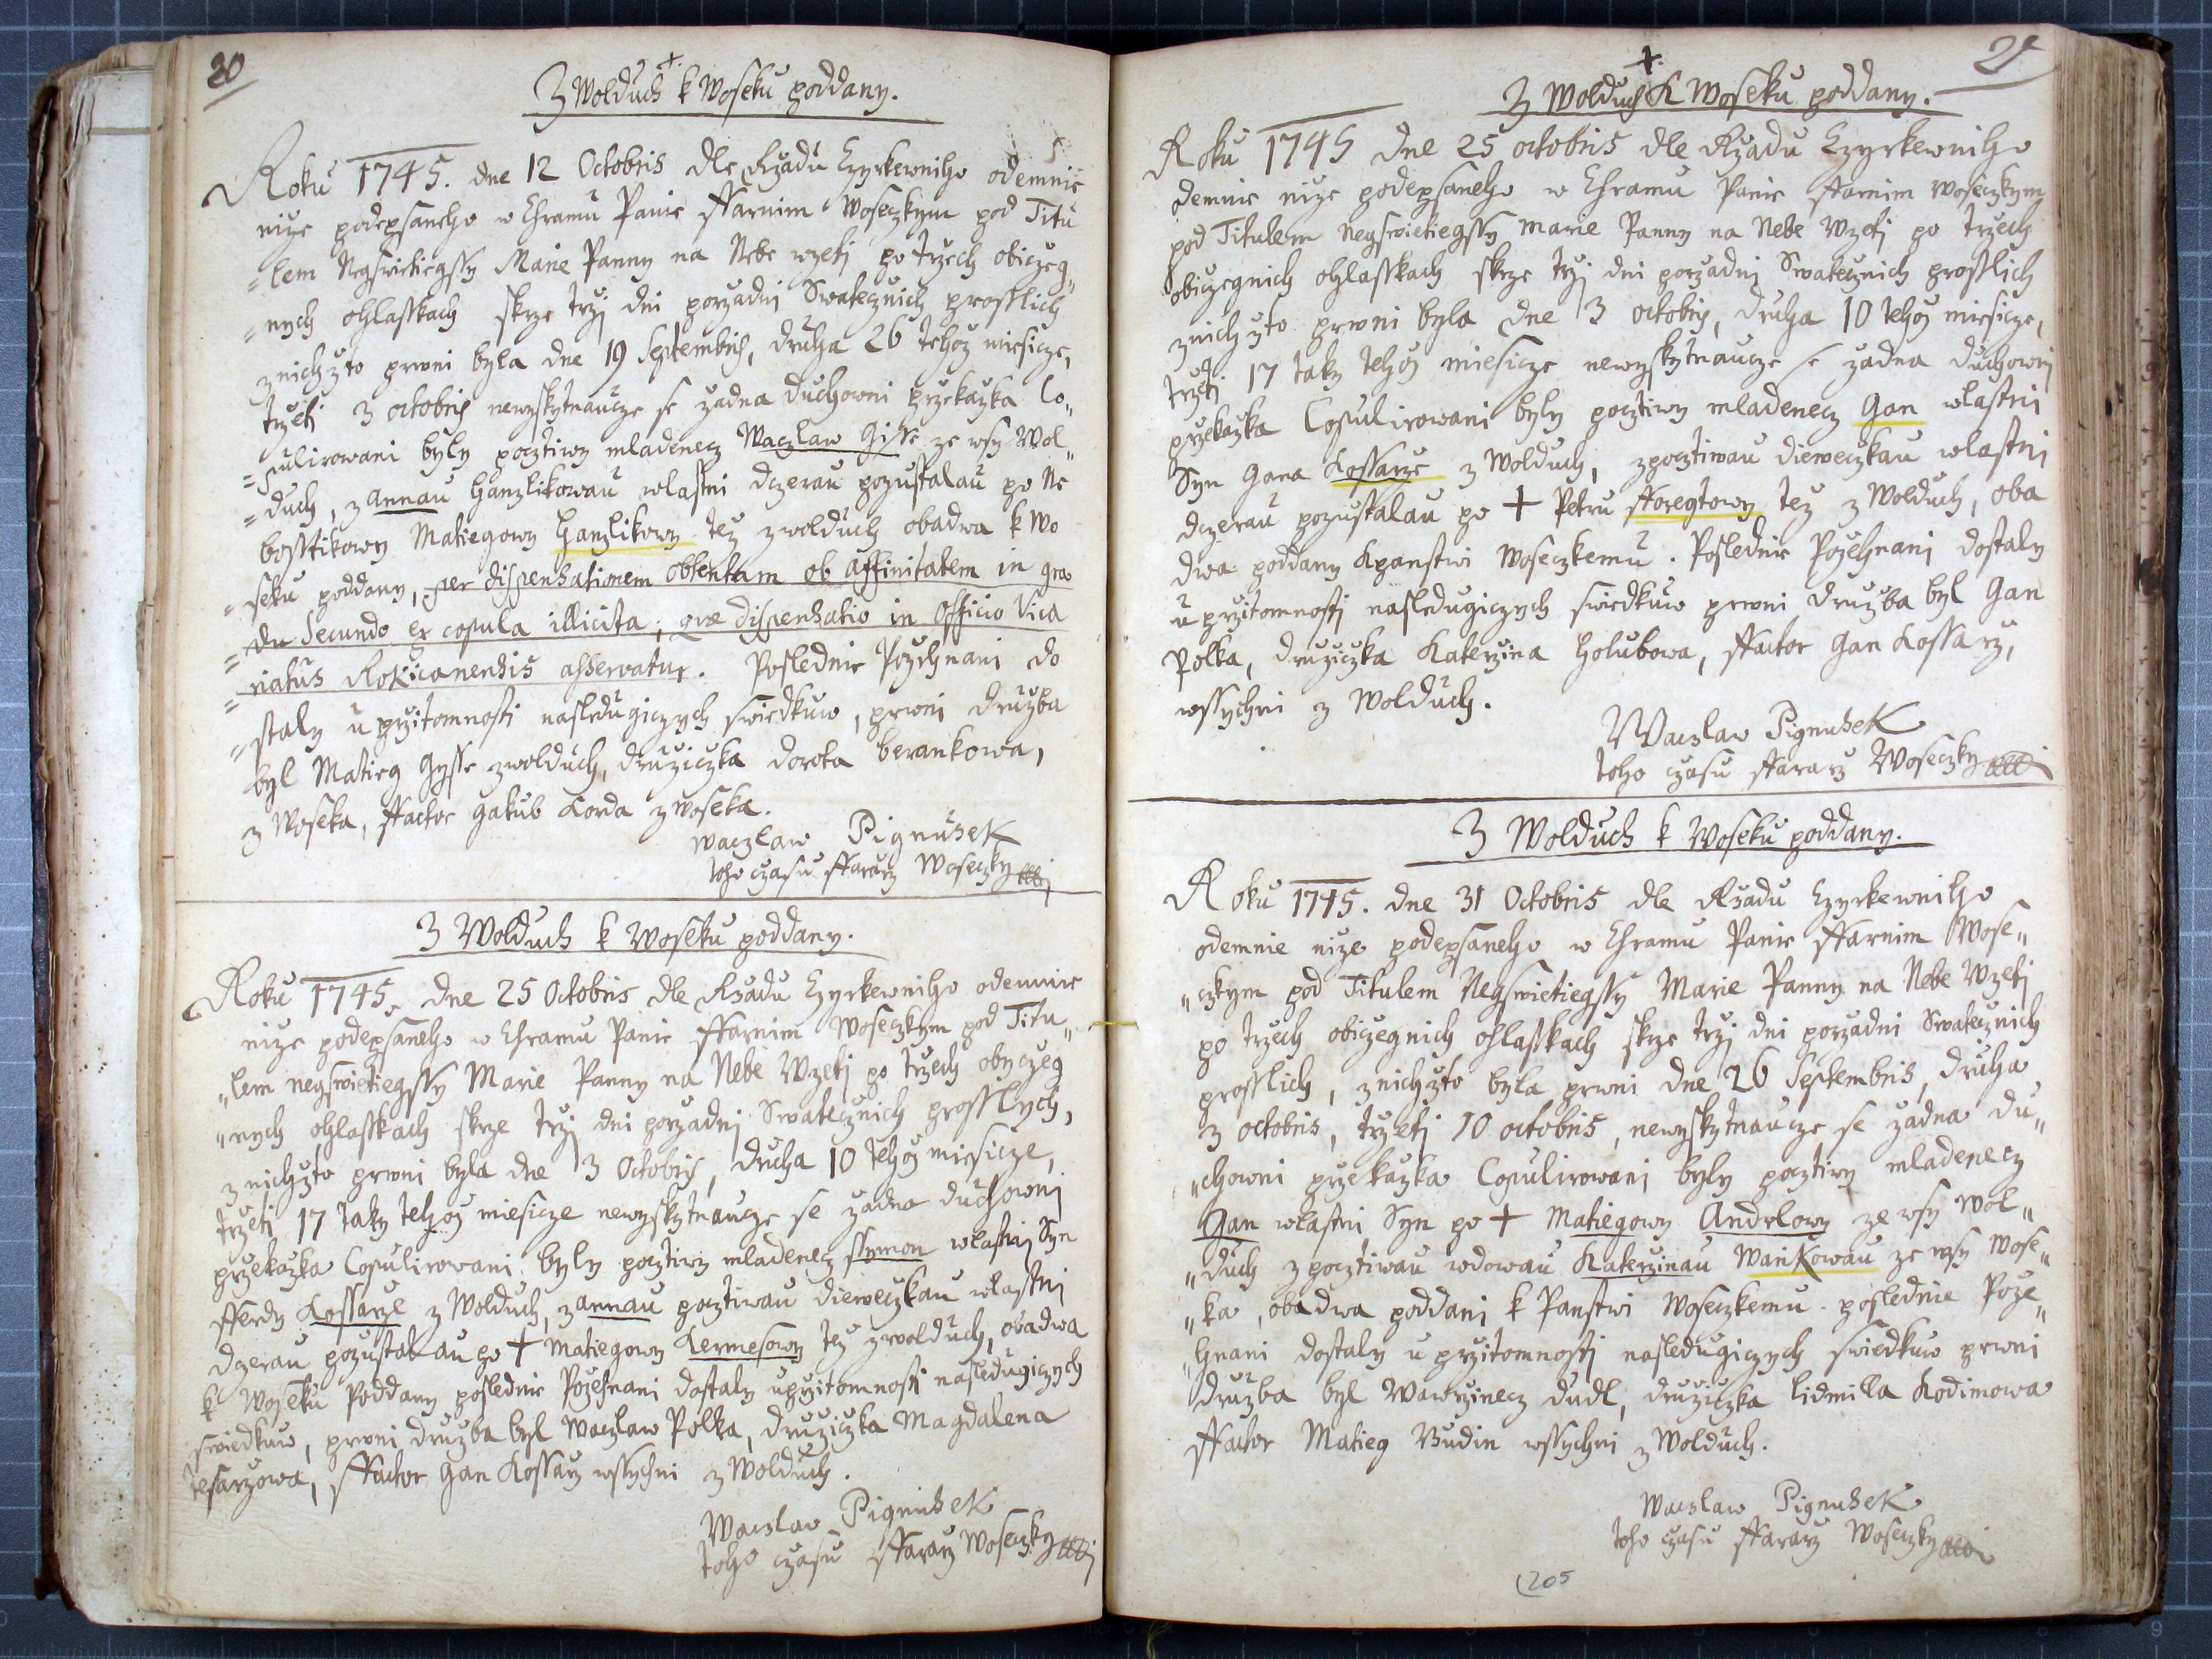 20
Z Wolduch k Woseku poddany.
Roku 1745. dne 12 Octobris dle Rzadu Czyrkewniho odemnie
nize podepsaneho w Chramu Panie ffarnim Woseczkym pod Titu
=lem Negswietiegssy Marie Panny na Nebe wzeti po trzech obiczeg„
=nych ohlasskach skrze trzj dni porzadni Swatecznich prosslich
znichzto prwni byla dne 19 Septembris, druha 26 tehoz miesicze,
trzeti 3 octobris newyskytnaucze se zadna duchowni przekazka Co„
=pulirowani byly pocztiwy mladenecz Waczlaw Gisse ze wsy Wol„
=duch, z Annau Hanzlikowau wlastni dczerau pozustalau po Ne
bosstikowy Matiegowy Hanzlikowy tez z wolduch obadwa k Wo
=seku poddany, per dispensationem obtentam ob affinitatem in gra
=du Secundo ex copula illicita, quæ dispensatio in Officio Vica
=riatus Rokicanensis asservatur. Poslednie Pozehnani do
=staly u przitomnosti nasledugiczych swiedkuw, prwni druzba
byl Matieg Gysse z wolduch, druziczka dorota berankowa,
z Woseka, ffactor Jakub Korda z woseka.
Waczlaw Pignusek
toho czasu ffararz Woseczky
Z Wolduch k Woseku poddany.
Roku 1745. dne 25 Octobris dle Rzadu Czyrkewniho odemnie
nize podepsaneho w Chramu Panie ffarnim Woseczkym pod Titu„
„lem negswietiegssy Marie Panny na Nebe Wzeti po trzech obyczeg
„nych ohlasskach skrze trzj dni porzadnj Swatecznich prosslych,
znichzto prwni byla dne 3 Octobris, druha 10 tehoz miesicze,
trzeti 17 taky tehoz miesicze newyskytnaucze se zadna duchownj
przekazka Copulirowani byly pocztiwy mladenecz ssymon wlastnj Syn
fferdy Kossarze z Wolduch, z annau pocztiwau diewczkau wlastni
dczerau pozustalau po + Matiegowy Kermesowy tez z wolduch, obadwa
k Woseku Poddany poslednie Pozehnani dostaly u przitomnosti nasledugiczych
swiedkuw, prwni druzba byl Waczlaw Polka, druziczka Magdalena
tesarzowa, ffactor Gan Kossarz wssychni z Wolduch.
Waczlaw Pignusek
toho czasu ffararz Woseczky
21
Z Wolduch K Woseku poddany.
Roku 1745 dne 25 octobris dle Rzadu Czyrkewniho
demnie nize podepsaneho w Chramu Panie ffarnim Woseczkym
pod Titulem Negswietiegssy Marie Panny na Nebe Wzeti po trzech
obiczegnich ohlasskach skrze trzj dni porzadnj Swatecznich prosslich
znichzto prwni byla dne 3 octobris, druha 10 tehoz miesicze,
trzeti 17 taky tehoz miesicze newyskytnaucze se zadna duchownj
przekazka Copulirowani byly pocztiwy mladenecz Gan wlastni
Syn Gana Kossarze z Wolduch, z pocztiwau diewczkau wlastni
dczerau pozustalau po + Petru fforegtowy tez z Wolduch, oba
dwa poddany K panstwi Woseczkemu. Poslednie Pozehnanj dostaly
u przitomnosti nasledugiczych swiedkuw prwni druzba byl Gan
Polka, druziczka Katerzina Holubowa, ffactor Gan Kossarz,
wssychni z Wolduch.
Waczlaw Pignusek
toho czasu ffararz Woseczky
Z Wolduch k Woseku poddany.
Roku 1745. dne 31 Octobris dle Rzadu Czyrkewniho
odemnie nize podepsaneho w Chramu Panie ffarnim Wose„
„czkym pod Titulem Negswietiegssy Marie Panny na Nebe Wzeti
po trzech obiczegnich ohlasskach skrze trzj dni porzadni Swatecznich
prosslich, znichzto byla prwni dne 26 Septembris, druha
3 octobris, trzeti 10 octobris, newyskytnaucze se zadna du„
„chowni przekazka Copulirowanj byly pocztiwy mladenecz
Gan wlastni Syn po + Matiegowy Andrlowy ze wsy Wol„
„duch z pocztiwau wdowau Katerzinau Wankowau ze wsy Wose„
„ka, obadwa poddani k Panstwi Woseczkemu. poslednie Poze„
„hnani dostaly u przitomnosti nasledugiczych swiedkuw prwni
druzba byl Wawrzinecz dudl, druziczka lidmilla Kodimowa
ffactor Matieg Budin wssychni z Wolduch.
Waczlaw Pignusek
toho czasu ffararz Woseczky
205